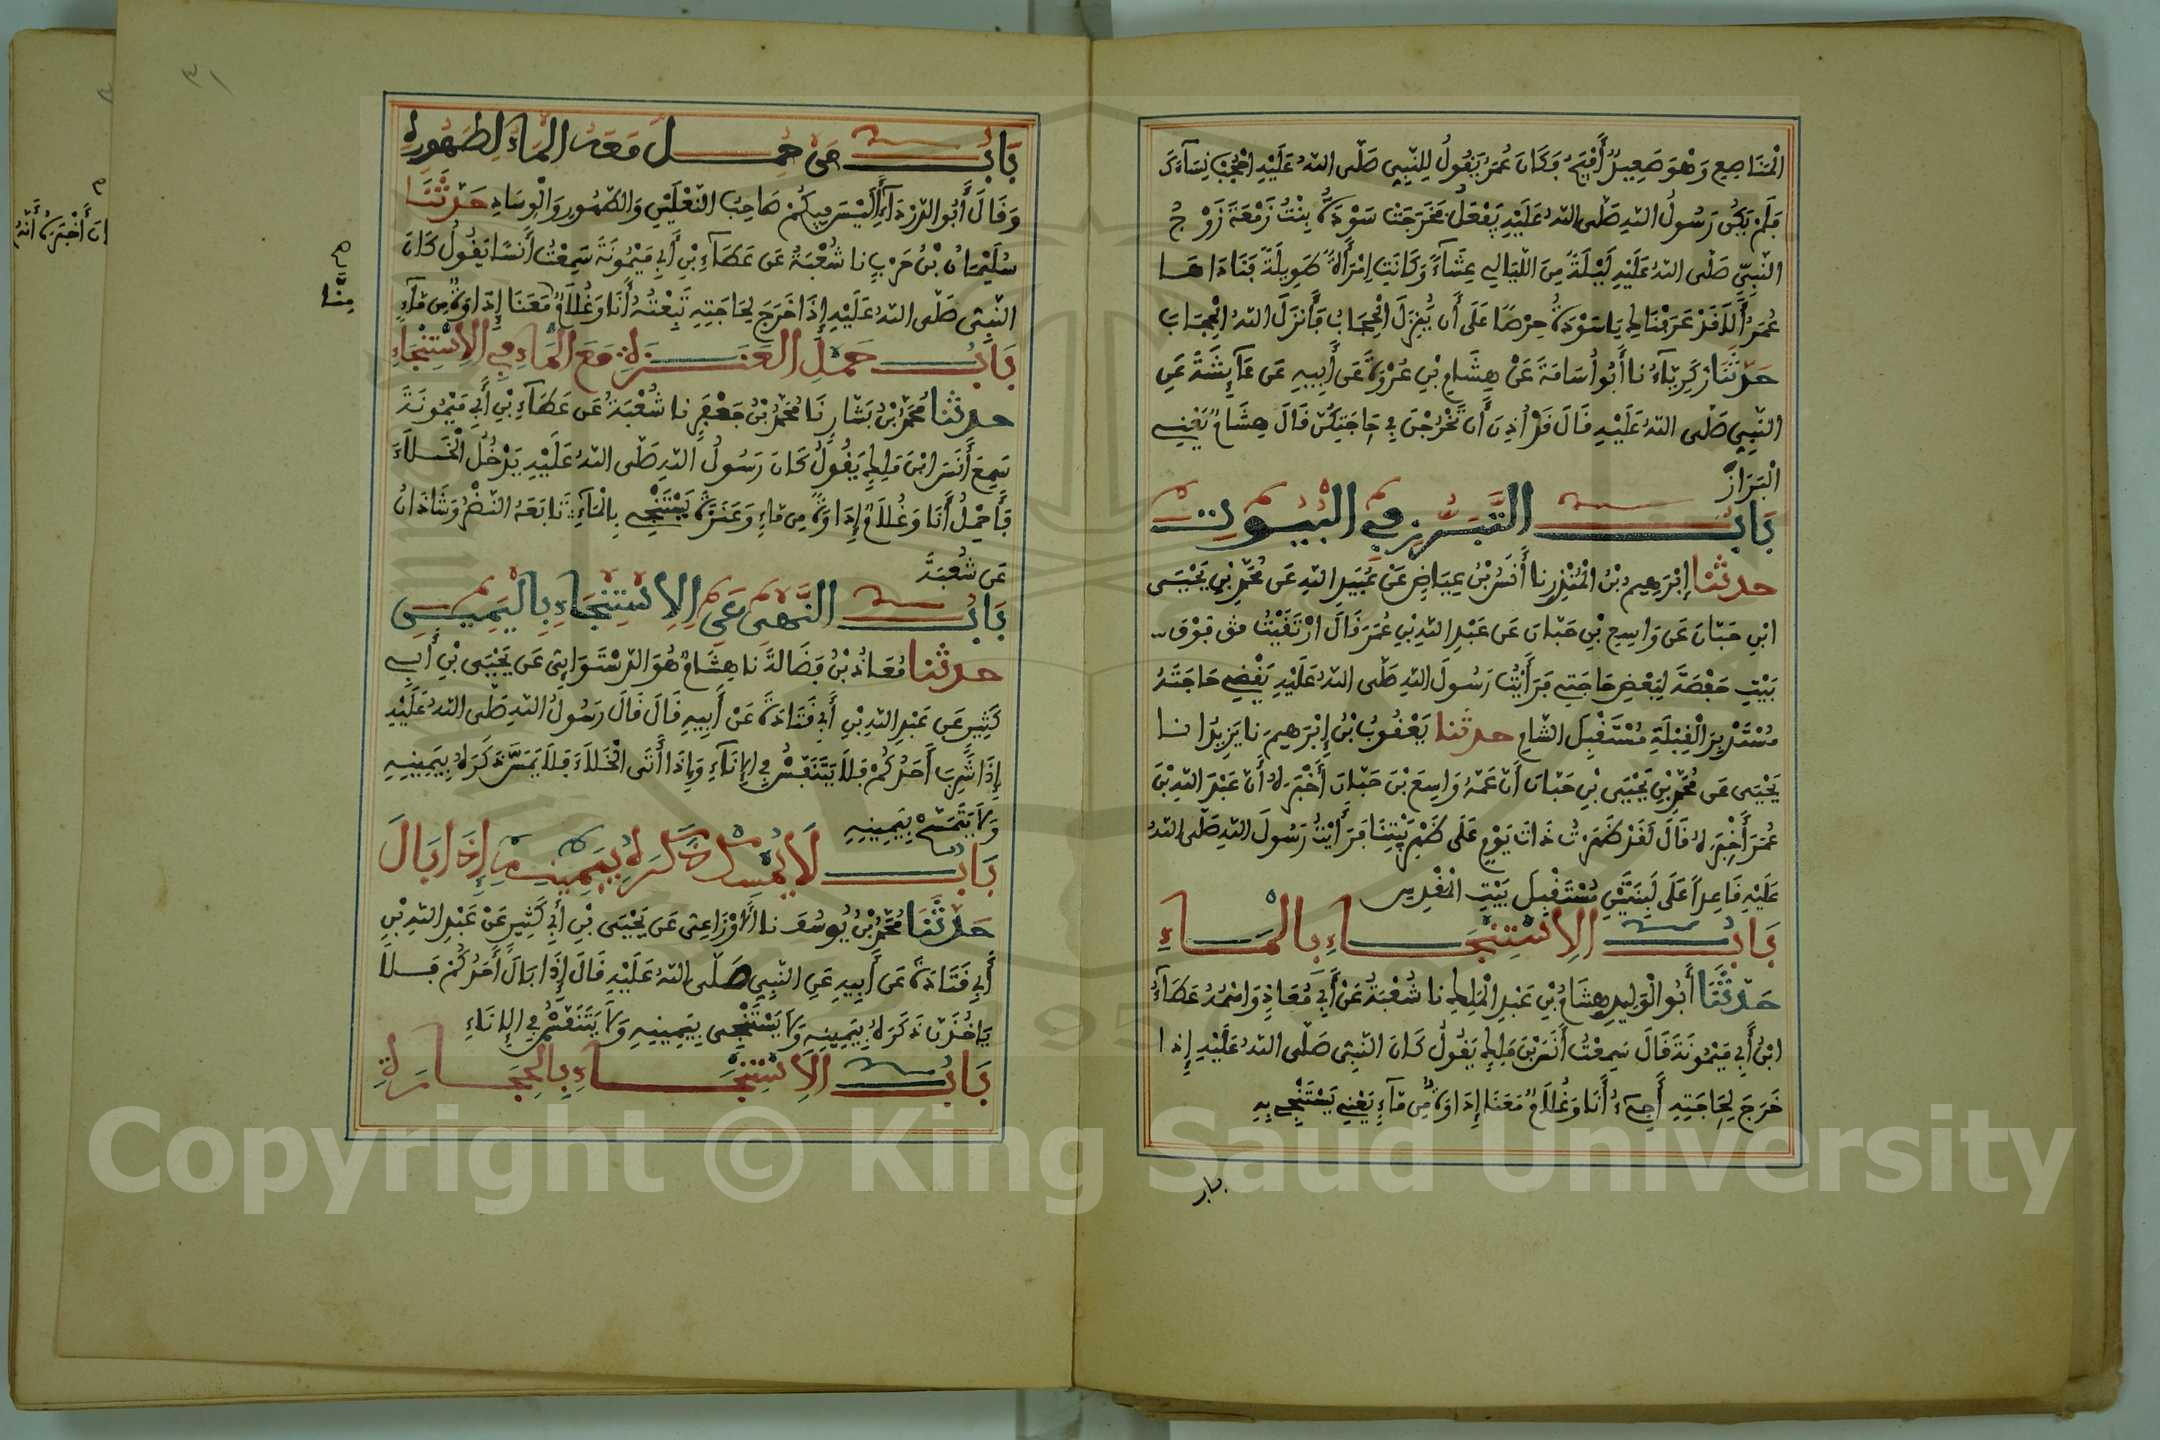 الْمَنَاصِعِ وَهْوَ صَعِيدٌ أَفْيَحُ فَكَانَ عُمَرُ يَقُولُ لِلنَّبِيِّ صَلَّى اللهُ عَلَيْهِ احْجُبْ نِسَآءَكَ
فَلَمْ يَكُنْ رَسُولُ اللهِ صَلَّى اللهُ عَلَيْهِ يَفْعَلُ فَخَرَجَتْ سَوْدَةُ بِنْتُ زَمْعَةَ زَوْجُ
النَّبِيِّ صَلَّى اللهُ عَلَيْهِ لَيْلَةً مِنَ اللَّيَالِي عِشَآءً وَكَانَتِ امْرَأَةً طَوِيلَةً فَنَادَاهَا
عُمَرُ أَلَا قَدْ عَرَفْنَاكِ يَا سَوْدَةُ حِرْصًا عَلَى أَنْ يُنْزِلَ الْحِجَابُ فَأَنْزَلَ اللهُ الْحِجَابَ
حَدَّثَنَا زَكَرِيَّآءُ نا أَبُو أُسَامَةَ عَنْ هِشَامِ بْنِ عُرْوَةَ عَنْ أَبِيهِ عَنْ عَآئِشَةَ عَنِ
النَّبِيِّ صَلَّى اللهُ عَلَيْهِ قَالَ قَدْ أُذِنَ أَنْ تَخْرُجْنَ فِي حَاجَتِكُنَّ قَالَ هِشَامٌ يَعْنِي
الْبَرَازَ
بَابُ التَّبَرُّزِ فِي الْبُيُوتِ
حدثنا إِبْرَهِيمُ بْنُ الْمُنْذِرِ نا أَنَسُ بْنُ عِيَاضٍ عَنْ عُبَيْدِ اللهِ عَنْ مُحَمَّدِ بْنِ يَحْيَى
ابْنِ حَبَّانَ عَنْ وَاسِعِ بْنِ حَبَّانَ عَنْ عَبْدِ اللهِ بْنِ عُمَرَ قَالَ ارْتَقَيْتُ فَوْقَ
بَيْتِ حَفْصَةَ لِبَعْضِ حَاجَتِي فَرَأَيْتُ رَسُولَ اللهِ صَلَّى اللهُ عَلَيْهِ يَقْضِي حَاجَتَهُ
مُسْتَدْبِرَ الْقِبْلَةِ مُسْتَقْبِلَ الشَّامِ حدثنا يَعْقُوبُ بْنُ إِبْرَهِيمَ نا يَزِيدُ انا
يَحْيَى عَنْ مُحَمَّدِ بْنِ يَحْيَى بْنِ حَبَّانَ أَنَّ عَمَّهُ وَاسِعَ بْنَ حَبَّانَ أَخْبَرَهُ أَنَّ عَبْدَ اللهِ بْنَ
عُمَرَ أَخْبَرَهُ قَالَ لَقَدْ ظَهَرْتُ ذَاتَ يَوْمٍ عَلَى ظَهْرِ بَيْتِنَا فَرَأَيْتُ رَسُولَ اللهِ صَلَّى اللهُ
عَلَيْهِ قَاعِدًا عَلَى لَبِنَتَيْنِ مُسْتَقْبِلَ بَيْتِ الْمَقْدِسِ
بَابُ الِاسْتِنْجَاءِ بِالْمَاءِ
حَدَّثَنَا أَبُو الْوَلِيدِ هِشَامُ بْنُ عَبْدِ الْمَلِكِ نا شُعْبَةُ عَنْ أَبِي مُعَاذٍ وَاسْمُهُ عَطَآءُ
ابْنُ أَبِي مَيْمُونَةَ قَالَ سَمِعْتُ أَنَسَ بْنَ مَلِكٍ يَقُولُ كَانَ النَّبِيُّ صَلَّى اللهُ عَلَيْهِ إِذَا
خَرَجَ لِحَاجَتِهِ أَجِيءُ أَنَا وَغُلَامٌ مَعَنَا إِدَاوَةٌ مِنْ مَآءٍ يَعْنِي يَسْتَنْجِي بِهِ
باب
٣١
بَابُ مَنْ حُمِلَ مَعَهُ الْمَاءُ لِطُهُورِهِ
وَقَالَ أَبُو الدَّرْدَآءِ أَلَيْسَ فِيكُمْ صَاحِبُ النَّعْلَيْنِ وَالطَّهُورِ وَالْوِسَادِ حَدَّثَنَا
سُلَيْمَانُ بْنُ حَرْبٍ نا شُعْبَةُ عَنْ عَطَآءِ بْنِ أَبِي مَيْمُونَةَ سَمِعْتُ أَنَسًا يَقُولُ كَانَ
النَّبِيُّ صَلَّى اللهُ عَلَيْهِ إِذَا خَرَجَ لِحَاجَتِهِ تَبِعْتُهُ أَنَا وَغُلَامٌ مَعَنَا إِدَاوَةٌ مِنْ مَآءٍ
مِنَّا
بَابُ حَمْلِ الْعَنَزَةِ مَعَ الْمَاءِ فِي الِاسْتِنْجَاءِ
حدثنا مُحَمَّدُ بْنُ بَشَّارٍ نَا مُحَمَّدُ بْنُ جَعْفَرٍ نا شُعْبَةُ عَنْ عَطَآءِ بْنِ أَبِي مَيْمُونَةَ
سَمِعَ أَنَسَ ابْنَ مَلِكٍ يَقُولُ كَانَ رَسُولُ اللهِ صَلَّى اللهُ عَلَيْهِ يَدْخُلُ الْخَلَاءَ
فَأَحْمِلُ أَنَا وَغُلَامٌ إِدَاوَةً مِنْ مَاءٍ وَعَنَزَةً يَسْتَنْجِي بِالْمَآءِ تَابَعَهُ النَّضْرُ وَشَاذَانُ
عَنْ شُعْبَةَ
بَابُ النَّهْيِ عَنِ الِاسْتِنْجَاءِ بِالْيَمِينِ
حدثنا مُعَاذُ بْنُ فَضَالَةَ نا هِشَامٌ هُوَ الدَّسْتَوَائِيُّ عَنْ يَحْيَى بْنِ أَبِي
كَثِيرٍ عَنْ عَبْدِ اللهِ بْنِ أَبِي قَتَادَةَ عَنْ أَبِيهِ قَالَ قَالَ رَسُولُ اللهِ صَلَّى اللهُ عَلَيْهِ
إِذَا شَرِبَ أَحَدُكُمْ فَلَا يَتَنَفَّسْ فِي الْإِنَآءِ وَإِذَا أَتَى الْخَلَاءَ فَلَا يَمَسَّ ذَكَرَهُ بِيَمِينِهِ
وَلَا يَتَمَسَّحْ بِيَمِينِهِ
بَابُ لَا يُمْسِكُ ذَكَرَهُ بِيَمِينِهِ إِذَا بَالَ
حَدَّثَنَا مُحَمَّدُ بْنُ يُوسُفَ نا الْأَوْزَاعِيُّ عَنْ يَحْيَى بْنِ أَبِي كَثِيرٍ عَنْ عَبْدِ اللهِ بْنِ
أَبِي قَتَادَةَ عَنْ أَبِيهِ عَنِ النَّبِيِّ صَلَّى اللهُ عَلَيْهِ قَالَ إِذَا بَالَ أَحَدُكُمْ فَلَا
يَاخُذَنَّ ذَكَرَهُ بِيَمِينِهِ وَلَا يَسْتَنْجِي بِيَمِينِهِ وَلَا يَتَنَفَّسْ فِي الْإِنَاءِ
بَابُ الِاسْتِنْجَاءِ بِالْحِجَارَةِ
Copyright © King Saud University